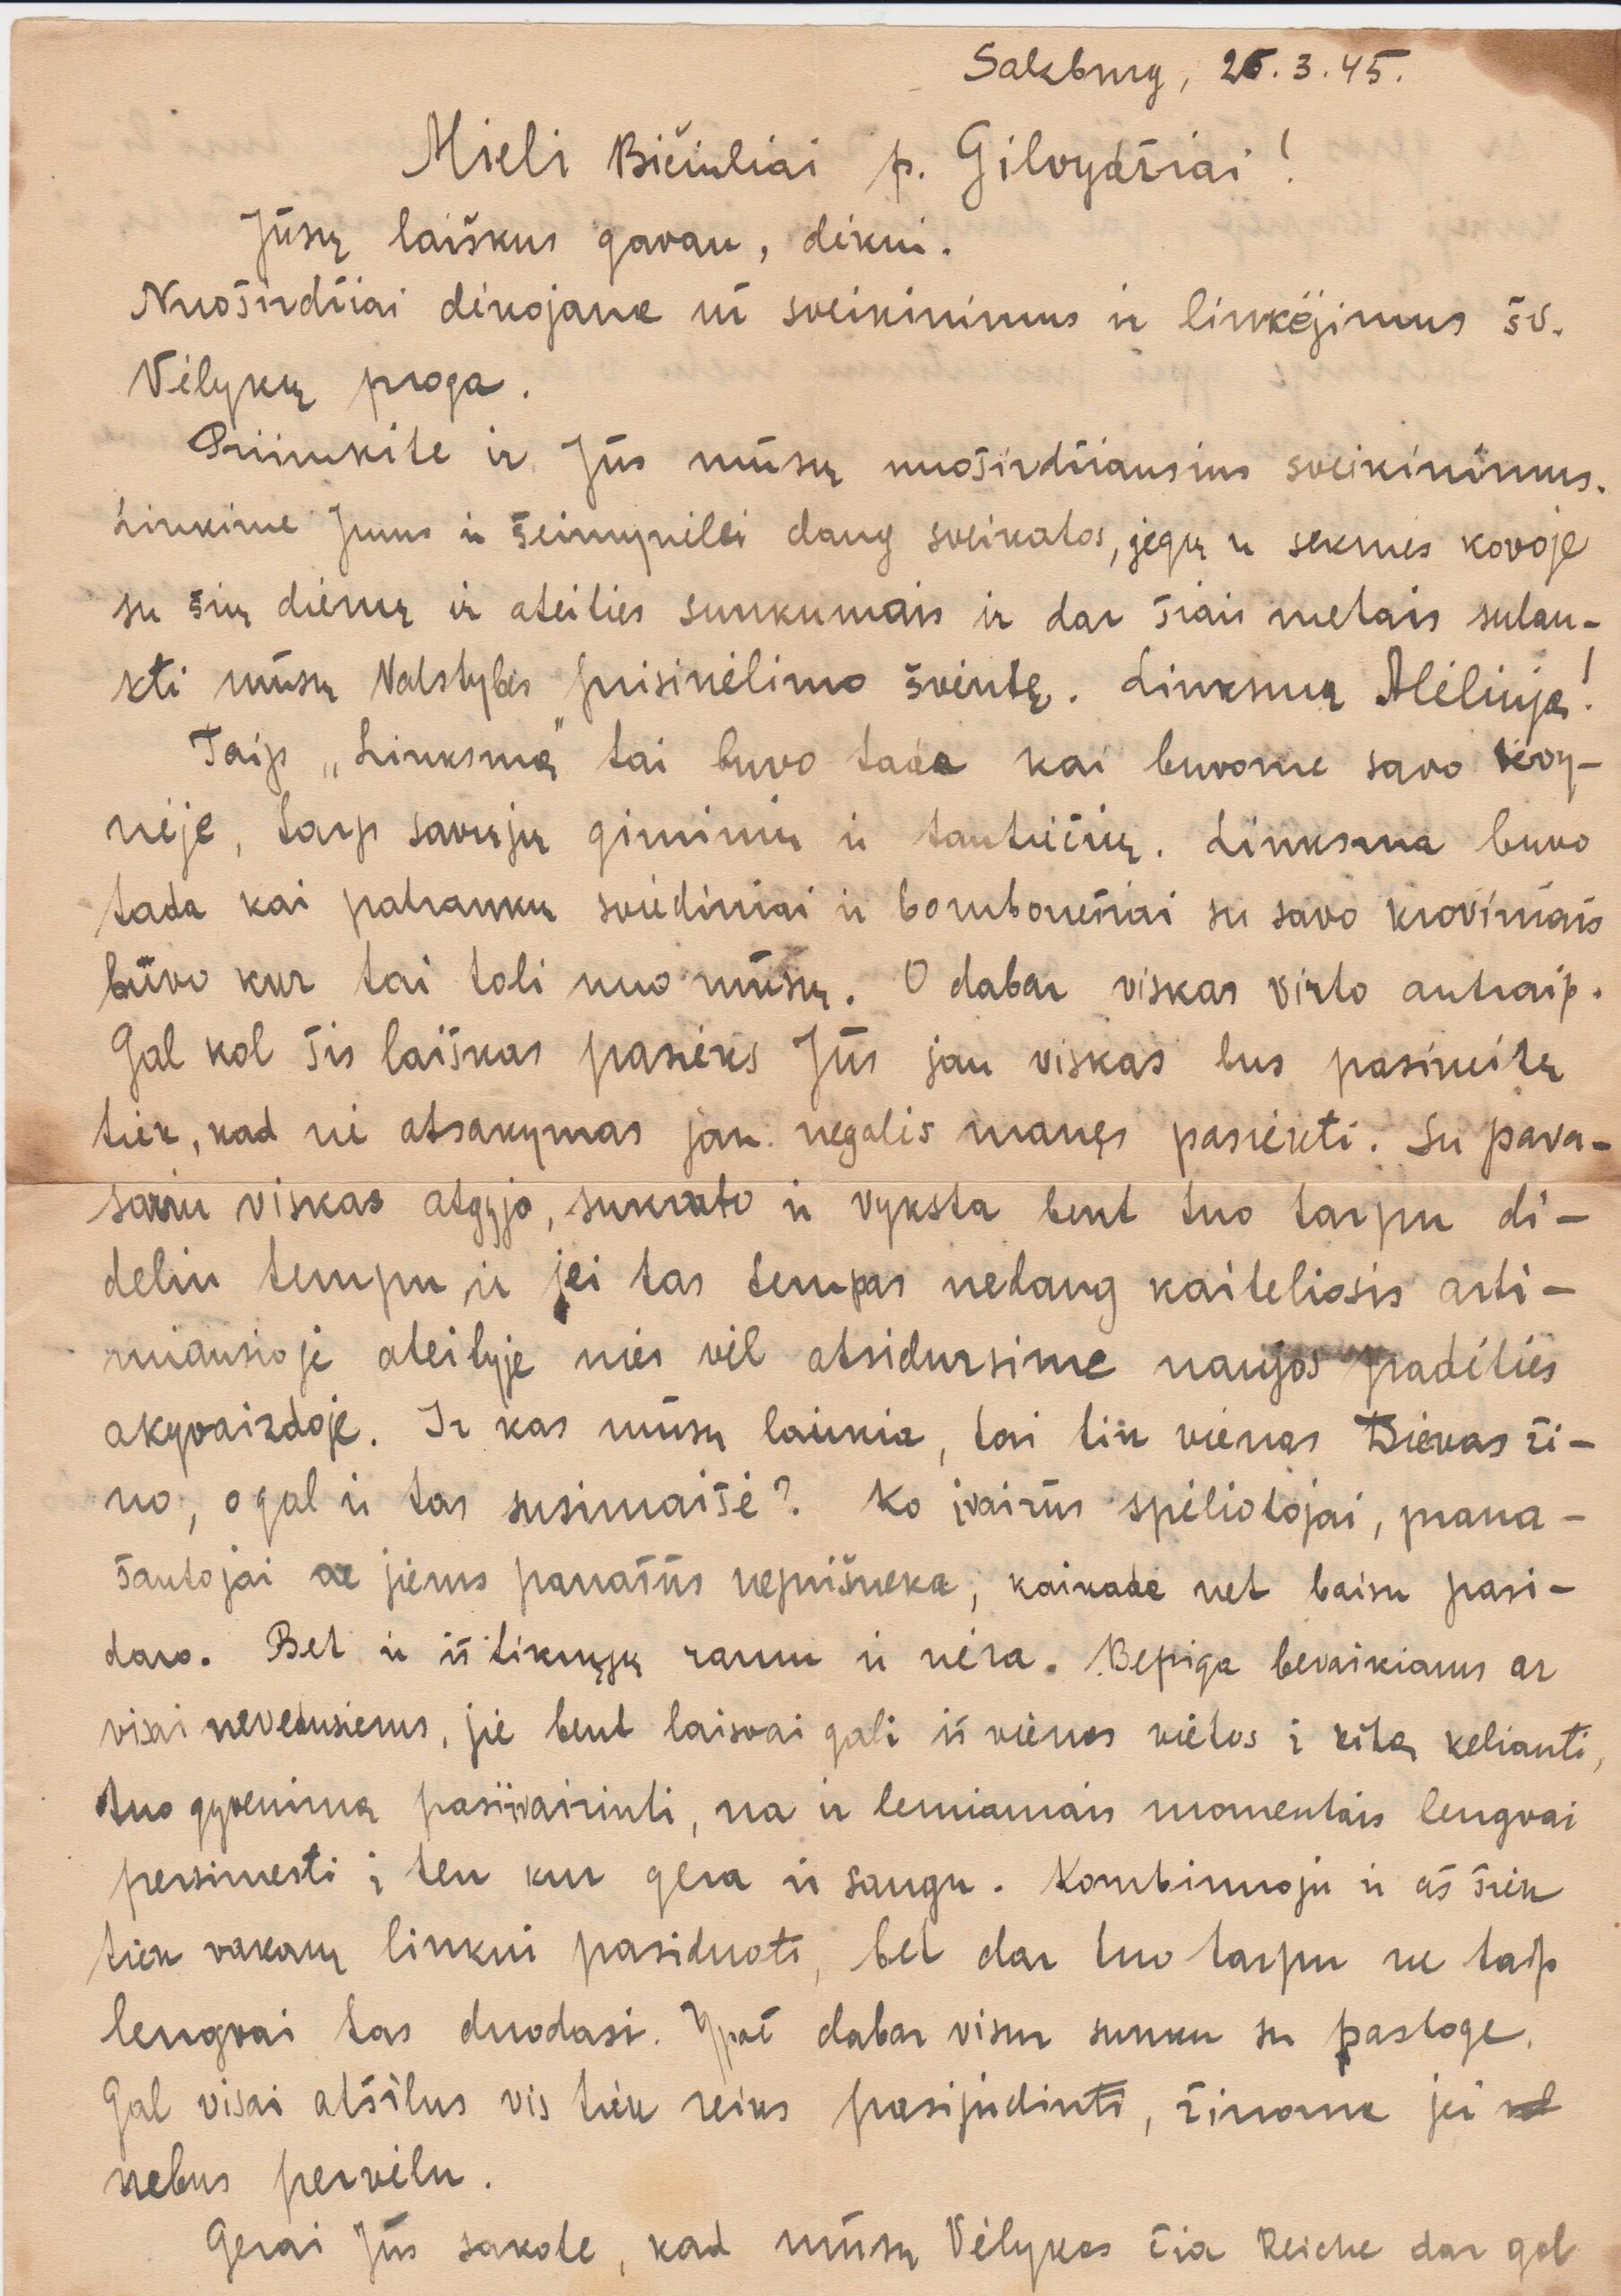 Salzburg, 26.3.45.
Mieli Bičiuliai p. Gilvydžiai!
Jūsų laiškus gavau, dėkui.
Nuoširdžiai dėkojame už sveikinimus ir linkėjimus šv.
Vėlykų proga.
Priimkite ir Jūs mūsų nuoširdžiausius sveikinimus.
Linkime Jums ir šeimynėlei daug sveikatos, jėgų ir sėkmės kovoje
su šių dienų ir ateities sunkumais ir dar šiais metais sulau-
kti mūsų Valstybės prisikėlimo šventę. Linksmų Alėliuja!
Taip „Linksmą" tai buvo tada kai buvome savo tėvy-
nėje, tarp savųjų giminių ir tautiečių. Linksma buvo
tada kai patrankų sviediniai ir bombonešiai su savo kroviniais
būvo kur tai toli nuo mūsų. O dabar viskas virto antraip.
Gal kol šis laiškas pasieks Jūs jau viskas bus pasikeitę
tiek, kad nė atsakymas jau negalės manęs pasiekti. Su pava-
sariu viskas atgyjo, sukruto ir vyksta bent tuo tarpu di-
deliu tempu ir jei tas tempas nedaug kaiteliosis arti-
miausioje ateityje mes vėl atsidursime naujos padėties
akyvaizdoje. Ir kas mūsų laukia, tai tik vienas Dievas ži-
no, o gal ir tas susimaišė? Ko įvairūs spėliotojai, prana-
šautojai ar jiems panašūs nepripišneka, kaikada net baisu pasi-
daro. Bet ir iš tikrųjų ramu ir nėra. Bepiga bevaikiams ar
visai nevedusiems, jie bent laisvai gali iš vienos vietos į kitą keliauti,
tuo gyvenimą pasiįvairinti, na ir lemiamais momentais lengvai
persimesti į ten kur gera ir saugu. Kombinuoju ir aš šiek
tiek vakarų linkui pasiduoti, bet dar tuo tarpu ne taip
lengvai tas duodasi. Ypač dabar visur sunku su pastoge.
Gal visai atšilus vis tiek reiks pasijudinti, žinoma jei
nebus pervėlu.
Gerai Jūs sakote, kad mūsų Vėlykos čia Reiche dar gal